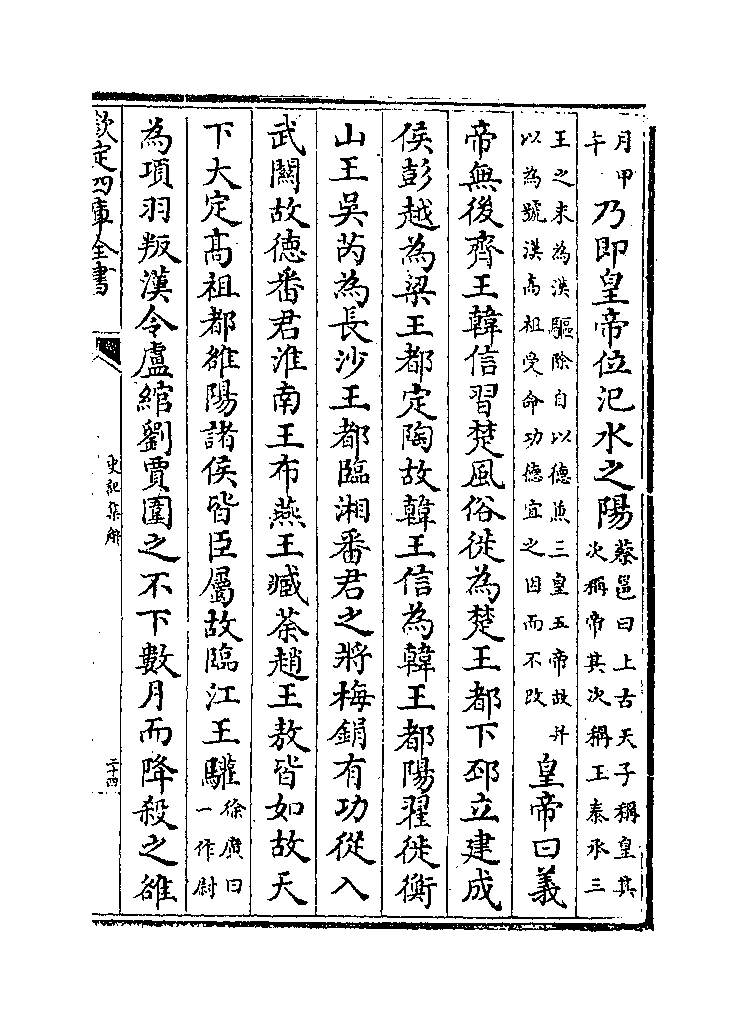 月甲午乃即皇帝位氾水之陽蔡邕曰上古天子稱皇其次稱帝其次稱王秦承三
王之末為漢驅除自以德兼三皇五帝故并以為號漢高祖受命功德宜之因而不改皇帝曰義
帝無後齊王韓信習楚風俗徙為楚王都下邳立建成
侯彭越為梁王都定陶故韓王信為韓王都陽翟徙衡
山王吳芮為長沙王都臨湘番君之將梅鋗有功從入
武關故德番君淮南王布燕王臧荼趙王敖皆如故天
下大定髙祖都雒陽諸侯皆臣屬故臨江王驩徐廣曰一作尉
為項羽叛漢令盧綰劉賈圍之不下數月而降殺之雒
欽定四庫全書
史記集解
二十四